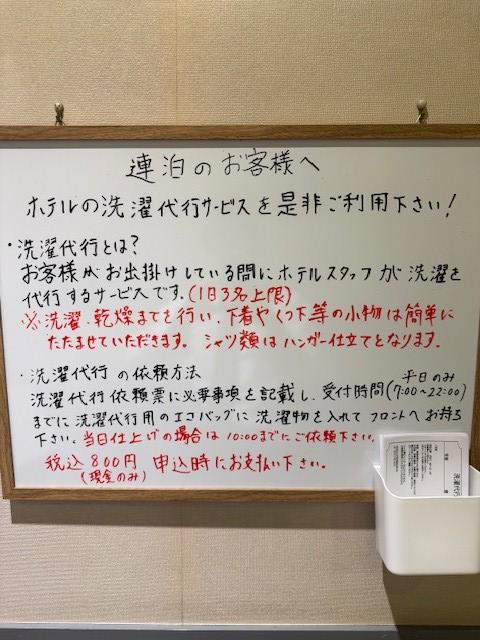 連泊のお客様へ
ホテルの洗濯代行サービスを是非ご利用下さい!
・洗濯代行とは?
お客様がお出掛けしている間にホテルスタッフが洗濯を
代行するサービスです。(1日3名上限)
※洗濯、乾燥までを行い、下着やくつ下等の小物は簡単に
たたませていただきます。 シャツ類はハンガー仕立てとなります。
・洗濯代行の依頼方法
平日のみ
洗濯代行依頼票に必要事項を記載し、受付時間(7:00~22:00)
までに洗濯代行用のエコバッグに洗濯物を入れてフロントへお持ち
下さい。当日仕上げの場合は10:00までにご依頼下さい。
税込800円 申込時にお支払い下さい。
(現金のみ)
洗濯代行